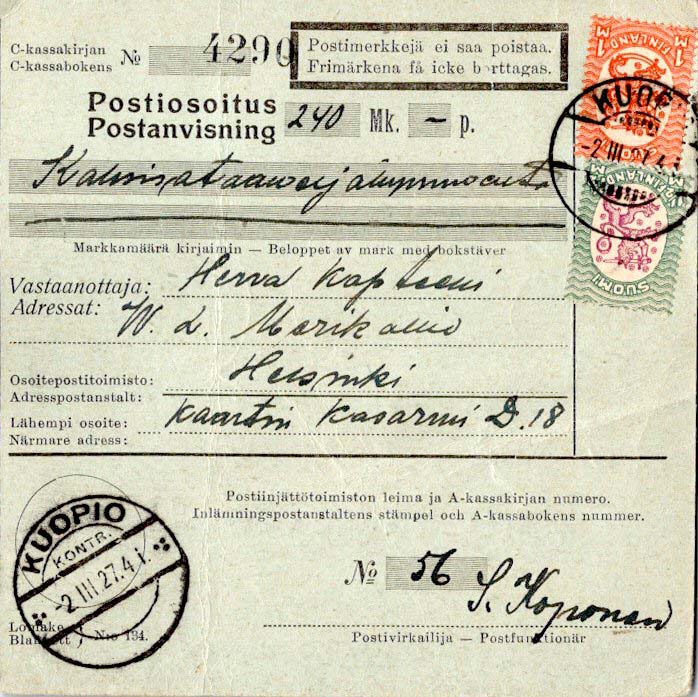 C-kassakirjan
C-kassabokens № 4290
Postimerkkejä ei saa poistaa.
Frimärkena få icke borttagas.
Postiosoitus
Postanvisning 240 Mk. — p.
Markkamäärä kirjaimin — Beloppet av mark med bokstäver
Vastaanottaja: Herra Kapteeni
Adressat: W. L. Merikallio
Osoitepostitoimisto: Helsinki
Adresspostanstalt:
Lähempi osoite: Kaartin Kasarmi D. 18
Närmare adress:
Postiinjättötoimiston leima ja A-kassakirjan numero.
Inlämningspostanstaltens stämpel och A-kassabokens nummer.
№ 56 S. Koponen
Postivirkailija — Postfunktionär
Lomake
Blankett N:o 134.
KUOPIO
KONTR.
-2 III 27.4 i.
KUOP
-2 III 27.4 i.
1 M FINLAND 1 M
SUOMI
FINLAND
SUOMI